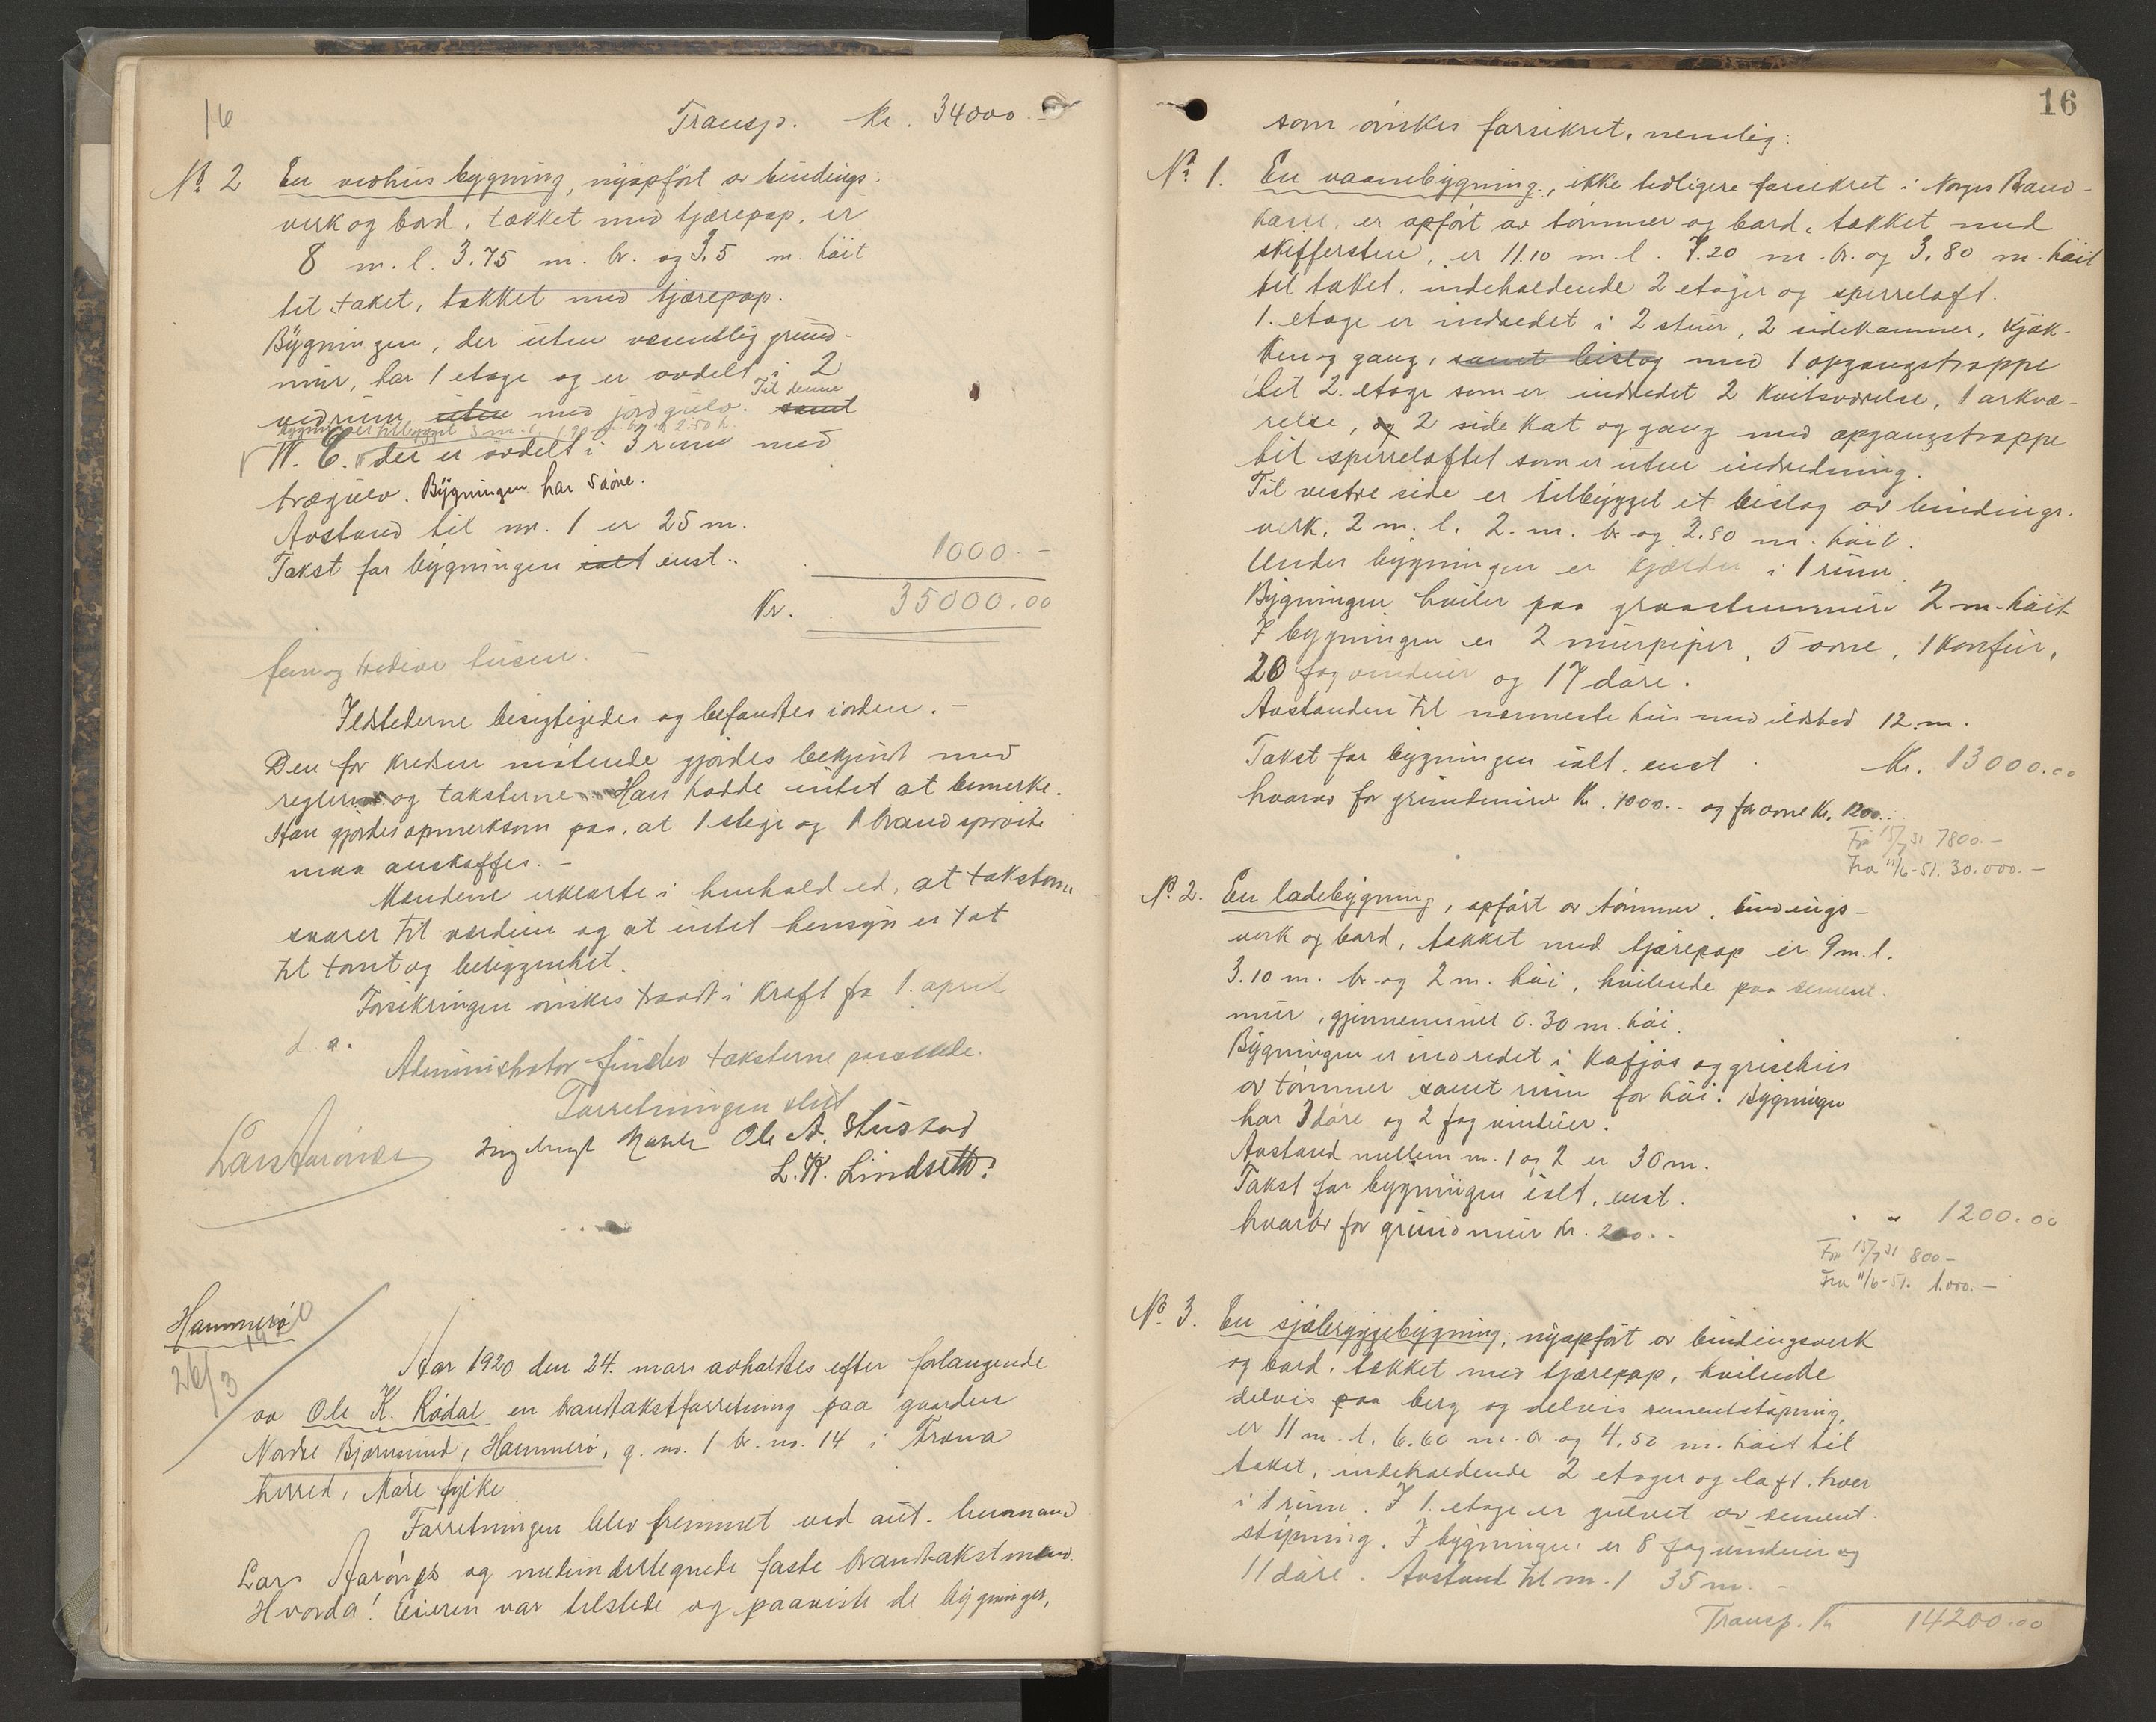 16
Transp. kr. 34000.-
No 2 En vedhusbygning, nyopført av bindings-
verk og bord, tækket med tjærepap, er
8 m. l. 3.75 m. br. og 3.5 m. høit
til taket, tækket med tjærepap.
Bygningen, der uten væsentlig grund-
mur, har 1 etage og er avdelt i 2
vedrum, uten med jordgulv. samt
Til denne
bygning er tilbygget 5 m. l. 1.20 m. br. 2.50 h.
W. C. der er avdelt i 3 rum med
trægulv. Bygningen har 5 døre.
Avstand til nr. 1 er 25 m.
Takst for bygningen ialt enst..
1000.-
Kr. 35000.00
fem og tredive tusen. -
Ildstederne besigtigedes og befandtes iorden. -
Den for kredsen møtende gjordes bekjent med
reglerne og taksterne. Han hadde intet at bemerke.
Han gjordes opmerksom paa, at 1 stige og 1 brandsprøite
maa anskaffes. -
Mændene erklærte i henhold ed, at taksterne
svarer til værdien og at intet hensyn er tat
til tomt og beliggenhet.
Forsikringen ønskes traadt i kraft fra 1. april
d. a.
Administrator finder taksterne passende.
Forretningen slut
Lars Aarønes Ingebrigt Ole A. Stustad
L. K. Lindseth.
Hammerø
1920
26/3
Aar 1920 den 24. mars avholdtes efter forlangende
av Ole K. Rødal en brandtakstforretning paa gaarden
Nordre Bjørnsund, Hammerø, g. no. 1 br. no. 14 i Fræna
herred, Møre fylke
Forretningen blev fremmet ved aut. lensmand
Lars Aarønes og medundertegnede faste brandtakstmænd.
Hvorda! Eieren var tilstede og paaviste de bygninger,
16
som ønskes forsikret, nemlig:
No 1. En vaanebygning, ikke tidligere forsikret i Norges Brand-
kasse, er opført av tømmer og bord, tækket med
skiffersten, er 11.10 m. l. 7.20 m. br. og 3.80 m. høit
til taket, indeholdende 2 etager og sperreloft.
1. etage er indredet i 2 stuer, 2 sidekammer, kjøk-
ken og gang, samt bislag med 1 opgangstrappe
til 2. etage som er indredet 2 kvistværelse, 1 arkvæ-
relse, og 2 side kot og gang med opgangstrappe
til sperreloftet som er uten indredning.
Til vestre side er tilbygget et bislag av bindings-
verk, 2 m. l. 2. m. br og 2.50 m. høit.
Under bygningen er kjælder i 1 rum.
Bygningen hviler paa graastensmur 2 m. høit
I bygningen er 2 murpiper, 5 ovne, 1 komfur,
20 fag vinduer og 17 døre.
Avstanden til nærmeste hus med ildsted 12 m.
Takst for bygningen ialt. enst. Kr. 13000.00
hvorav for grundmur Kr. 1000.- og for ovne Kr. 1200.-
Fra 15/7 31 7800.-
Fra 11/6-51. 30.000.-
No. 2. En ladebygning, opført av tømmer, bindings-
verk og bord, tækket med tjærepap er 9 m. l.
3.10 m. br. og 2 m. høi, hvilende paa sement-
mur, gjennemsnit 0.30 m. høi.
Bygningen er indredet i kufjøs og grisehus
av tømmer samt rum for høi. Bygningen
har 3 døre og 2 fag vinduer.
Avstand mellem nr. 1 og 2 er 30 m.
Takst for bygningen ialt, enst.
" " 1200.00
hvorav for grundmur kr. 200.-
Fra 15/7 31 800-
Fra 11/6-51. 1.000.-
No. 3. En sjøbryggebygning, nyopført av bindingsverk
og bord, tækket med tjærepap, hvilende
delvis paa berg og delvis sementstøpning,
er 11 m. l. 6.60 m. br og 4.50 m. høit til
taket, indeholdende 2 etager og loft, hver
i 1 rum. I 1. etage er gulvet av sement-
støpning. I bygningen er 8 fag vinduer og
11 døre. Avstand til nr. 1 35 m. -
Transp. Kr 14200.00